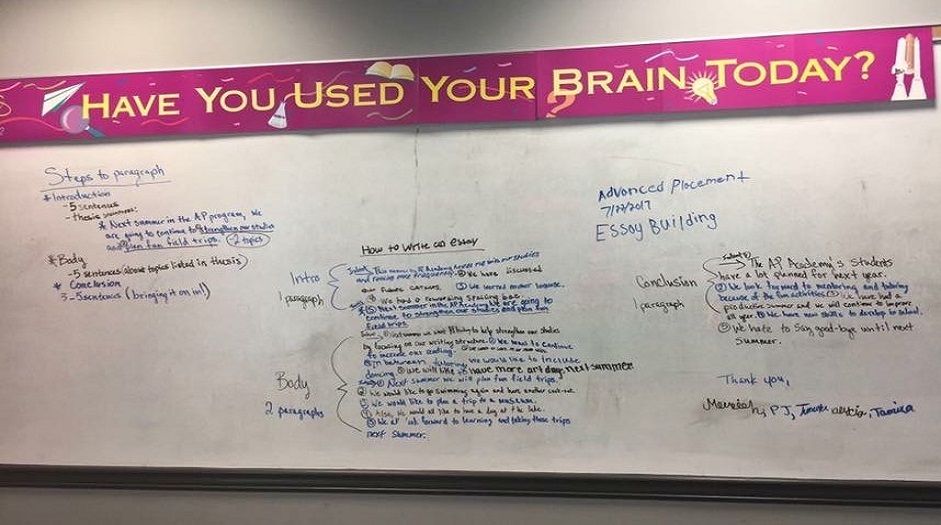 HAVE YOU USED YOUR BRAIN TODAY?
Steps to paragraph
* Introduction
- 5 sentences
- thesis
* Next summer in the AP program, we
are going to continue to strengthen our studies
and plan fun field trips. (2 topics)
* Body
- 5 sentences (about topics listed in thesis)
* Conclusion
3-5 sentence (bringing it on in!)
How to write an essay
Intro
1 paragraph
This summer in AP Academy
② We have discussed
our future careers. ③ We learned another language.
④ We had a rewarding spelling bee.
* ⑤ Next summer in the AP Academy we are going to
continue to strengthen our studies and plan fun
field trips
Body
2 paragraphs
to help strengthen our studies
by focusing on our writing structure. ② We need to continue
to increase our reading.
in between tutoring we would like to include
dancing. ⑤ We will like to have more art days next summer
① Next summer we will plan fun field trips.
② We would like to go swimming again and have another cook-out.
③ We would like to plan a trip to a museum.
④ Also, we would all like to have a day at the lake.
⑤ We look forward to learning and taking these trips
next summer.
Advanced Placement
7/27/2017
Essay Building
Conclusion
1 paragraph
① The AP Academy's students
have a lot planned for next year.
② We look forward to mentoring and tutoring
because of the fun activities. ③ We have had a
productive summer and we will continue to improve
all year. ④ We have new skills to develop in school.
⑤ We hate to say good-bye until next
summer.
Thank you,
PJ, Tamia